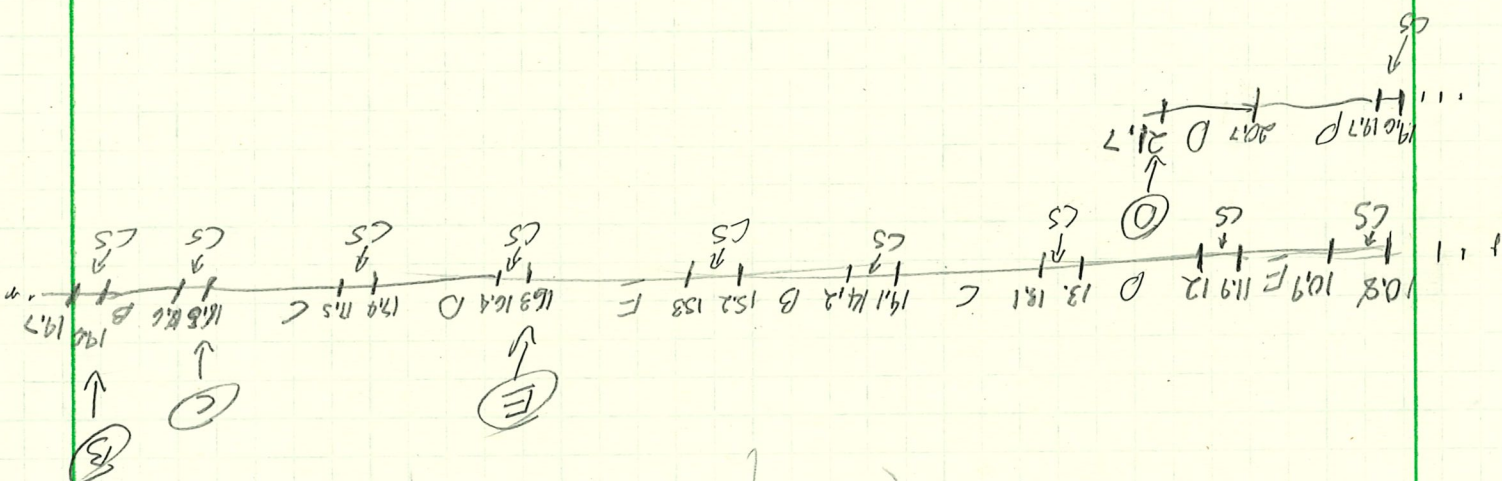 E C B
10.8 10.9 E 11.9 12 D 13. 13.1 C 14.1 14.2 B 15.2 15.3 E 16.3 16.4 D 17.4 17.5 C 18.5 18.6 B 19.6 19.7
CS CS CS CS CS CS CS CS CS
D
19.6 19.7 D 20.7 D 21.7
CS